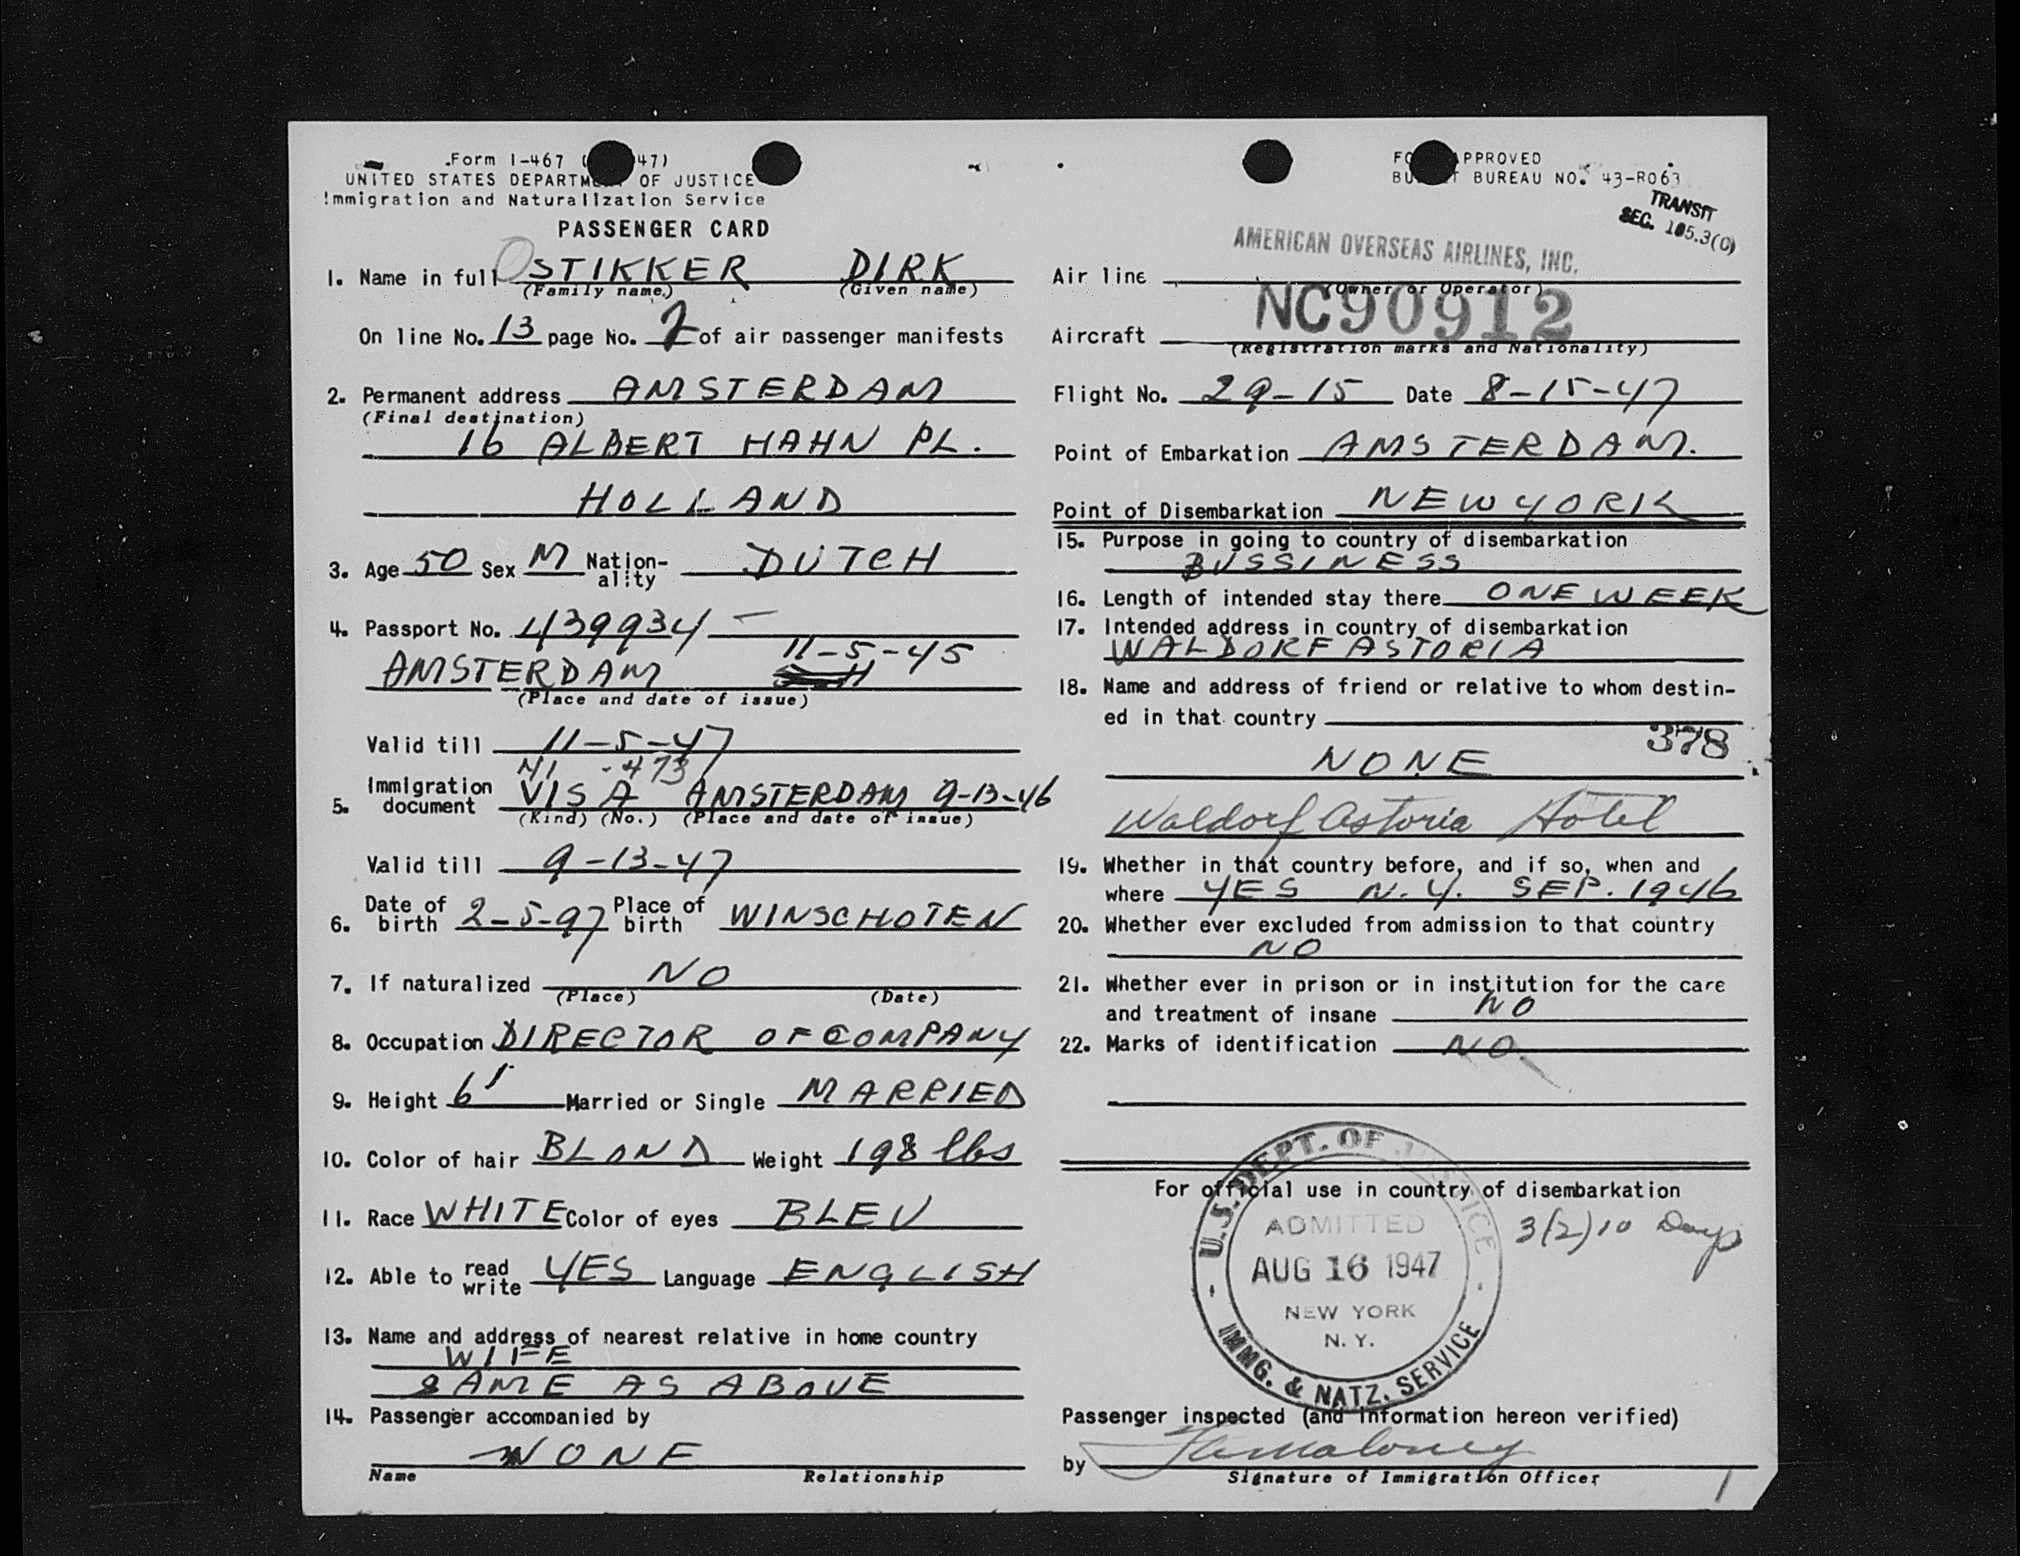 Form I-467 ( 47)
UNITED STATES DEPARTMENT OF JUSTICE
Immigration and Naturalization Service
PASSENGER CARD
1. Name in full STIKKER DIRK
(Family name) (Given name)
On line No. 13 page No. 2 of air passenger manifests
2. Permanent address AMSTERDAM
(Final destination)
16 ALBERT HAHN PL.
HOLLAND
3. Age 50 Sex M Nation-ality DUTCH
4. Passport No. 439934 —
AMSTERDAM 11-5-45
(Place and date of issue)
Valid till 11-5-47
5. Immigration document VISA AMSTERDAM 9-13-46
(Kind) (No.) (Place and date of issue)
Valid till 9-13-47
6. Date of birth 2-5-97 Place of birth WINSCHOTEN
7. If naturalized NO
(Place) (Date)
8. Occupation DIRECTOR OF COMPANY
9. Height 6' Married or Single MARRIED
10. Color of hair BLOND Weight 198 lbs
11. Race WHITE Color of eyes BLEU
12. Able to read write YES Language ENGLISH
13. Name and address of nearest relative in home country
WIFE
SAME AS ABOVE
14. Passenger accompanied by
NONE
Name Relationship
FORM APPROVED
BUDGET BUREAU NO. 43-R063
TRANSIT
SEC. 105.3(C)
AMERICAN OVERSEAS AIRLINES, INC.
Air line
(Owner or Operator)
Aircraft NC90912
(Registration marks and Nationality)
Flight No. 29-15 Date 8-15-47
Point of Embarkation AMSTERDAM.
Point of Disembarkation NEW YORK
15. Purpose in going to country of disembarkation
BUSSINESS
16. Length of intended stay there ONE WEEK
17. Intended address in country of disembarkation
WALDORF ASTORIA
18. Name and address of friend or relative to whom destin-
ed in that country
378
NONE
Waldorf Astoria Hotel
19. Whether in that country before, and if so, when and
where YES N.Y. SEP. 1946
20. Whether ever excluded from admission to that country
NO
21. Whether ever in prison or in institution for the care
and treatment of insane NO
22. Marks of identification NO.
For official use in country of disembarkation
3(2) 10 Days
U.S. DEPT. OF JUSTICE
ADMITTED
AUG 16 1947
NEW YORK
N.Y.
IMMG. & NATZ. SERVICE
Passenger inspected (and information hereon verified)
by
Signature of Immigration Officer